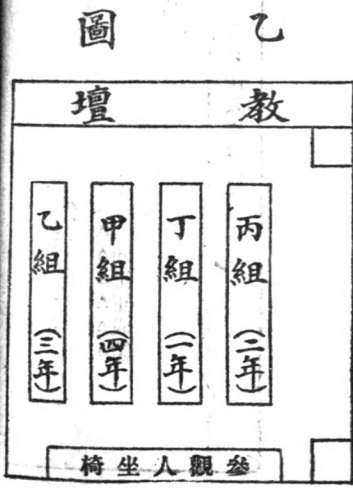 乙圖
教壇
丙組(二年)
丁組(一年)
甲組(四年)
乙組(三年)
參觀人坐椅